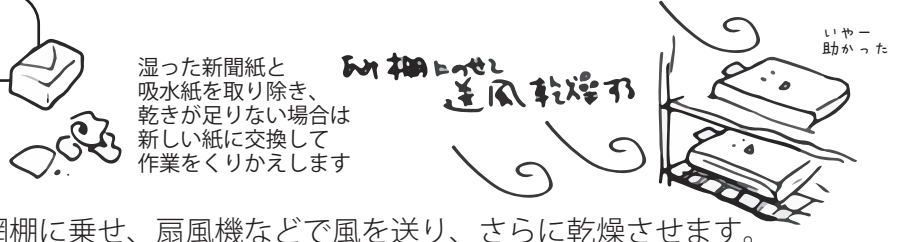 湿った新聞紙と
吸水紙を取り除き、
乾きが足りない場合は
新しい紙に交換して
作業をくりかえします
網棚にのせて
送風乾燥する
いやー
助かった
網棚に乗せ、扇風機などで風を送り、さらに乾燥させます。